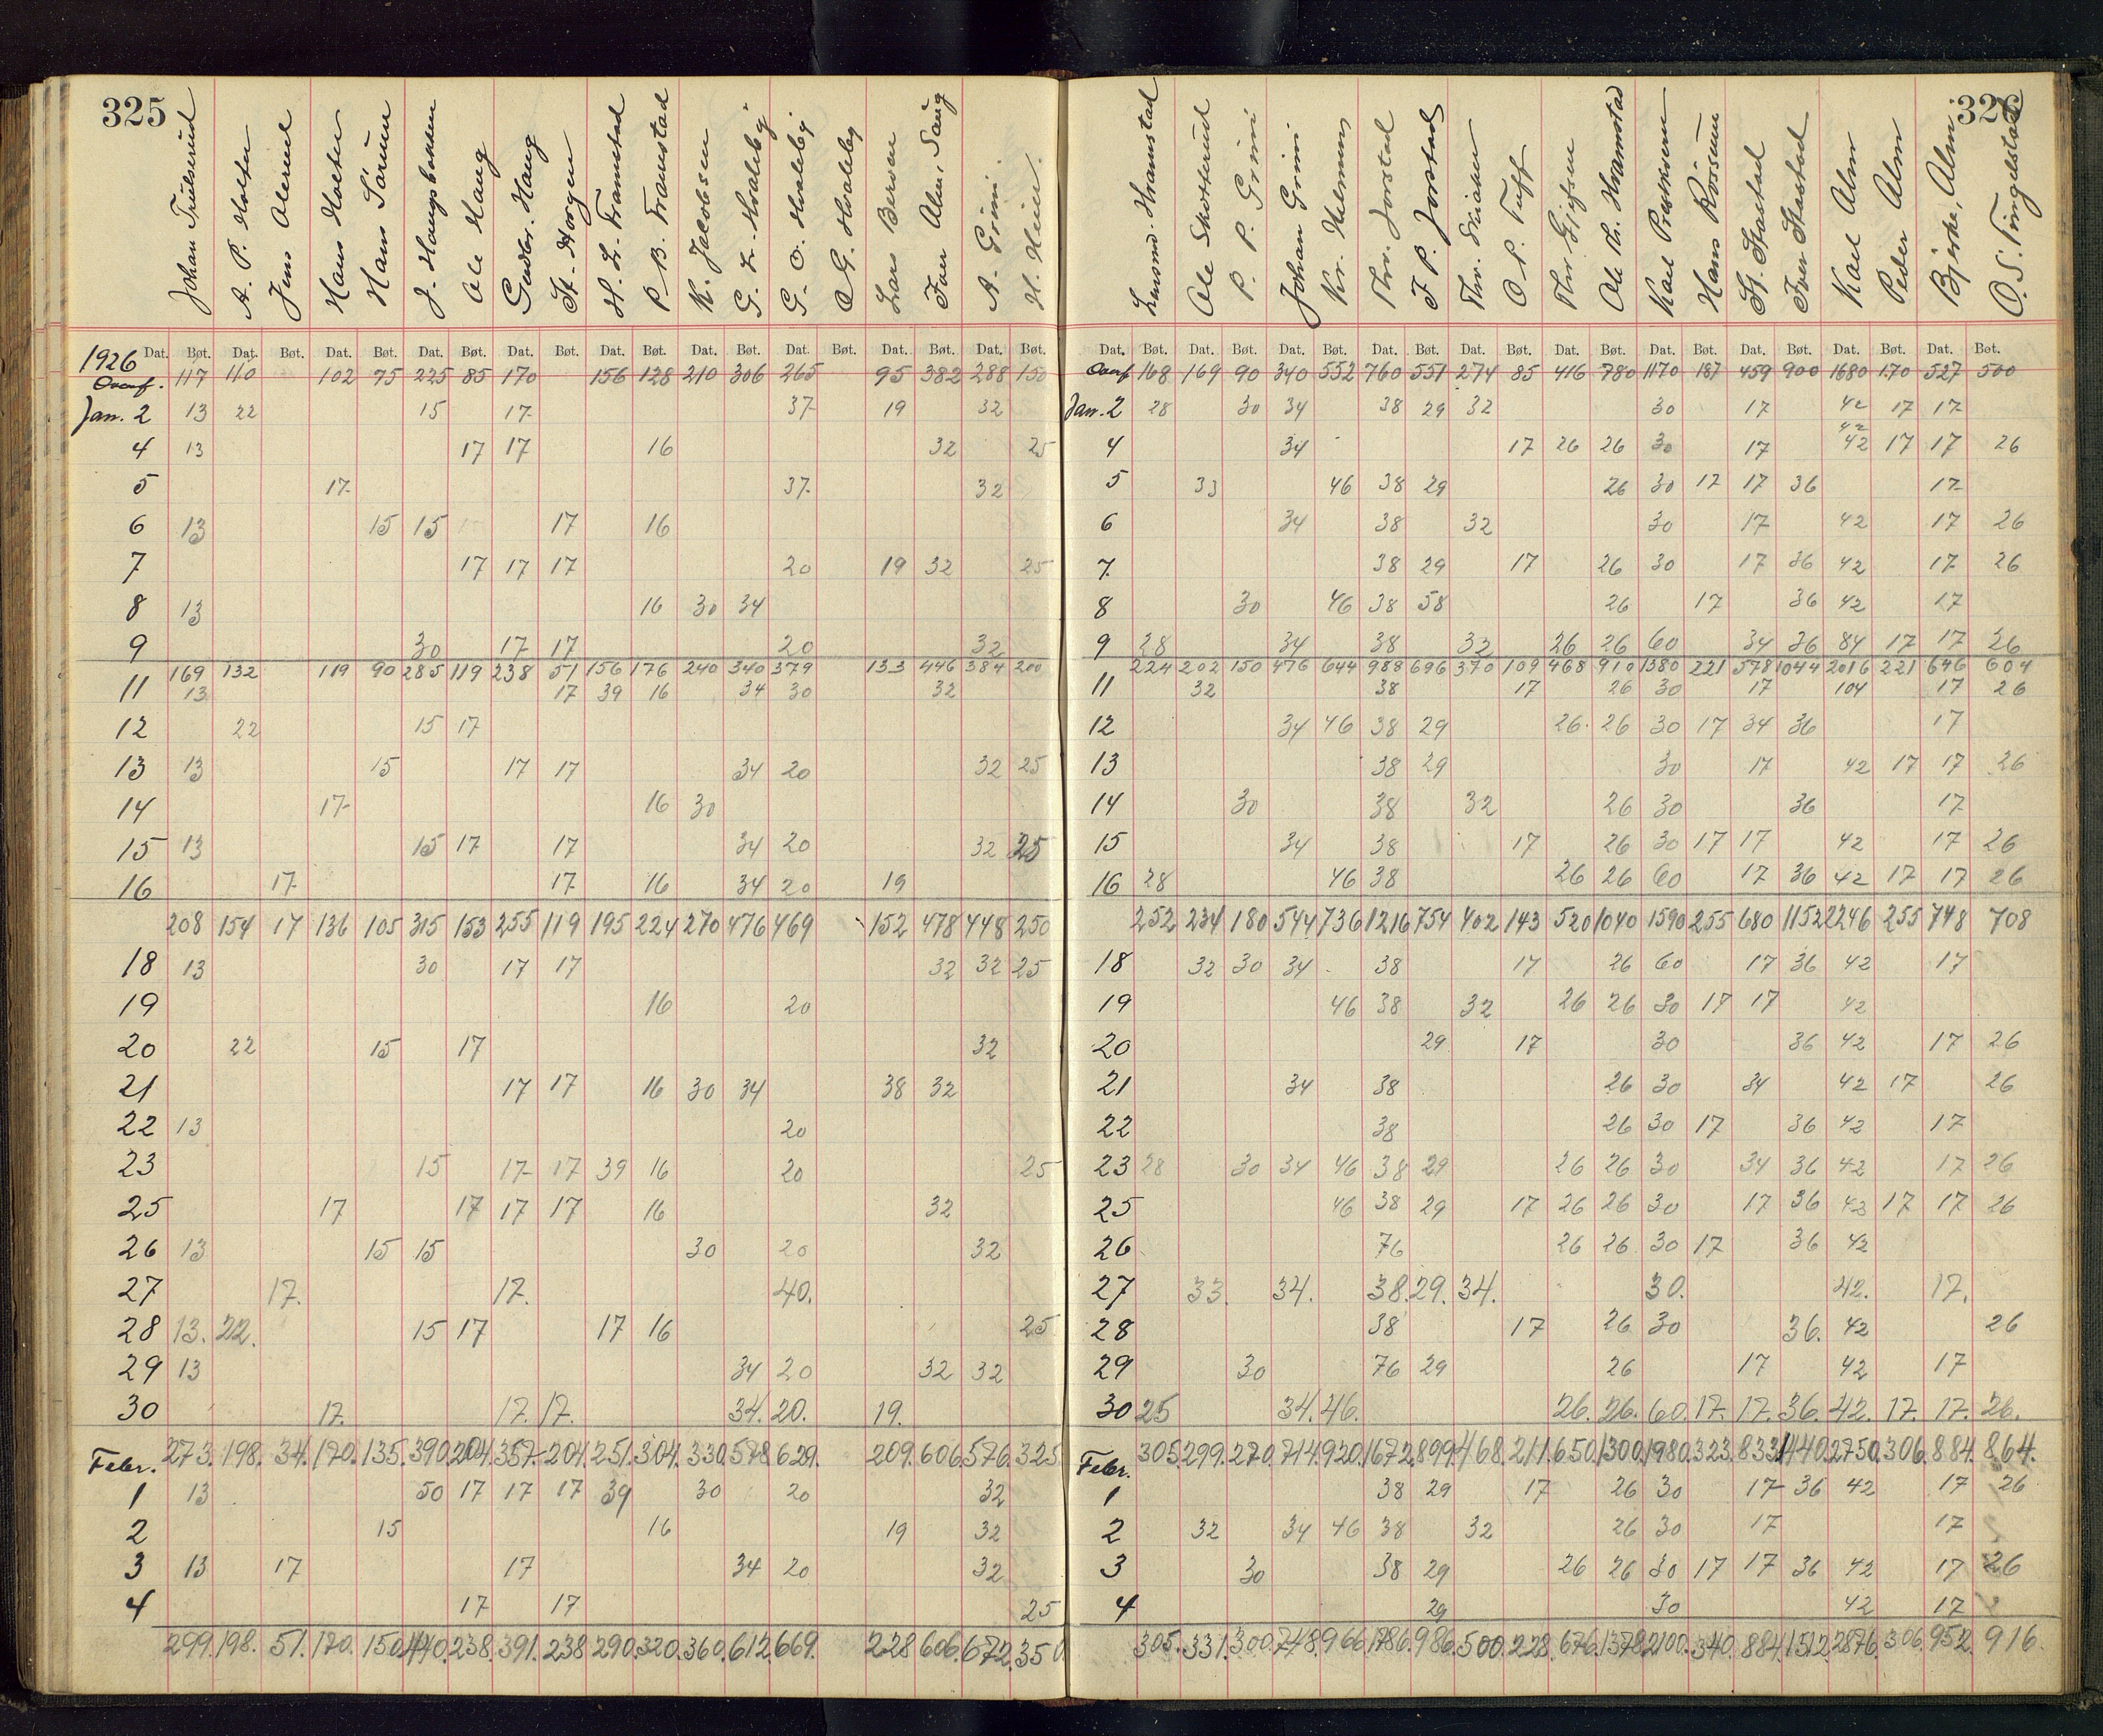 325
Johan Trulserud A. P. Holter Jens Alerud Hans Holter Hans Sørum J. Haugsbakken Ole Haug Gudbr. Haug St. Horgen H. L. Framstad P. B. Framstad K. Jacobsen G. L. Hvaleby G. O. Hvaleby O. G. Hvaleby Lars Bersen Iver Alm, Saug A. Grini. H. Heier.
1926 Dat. Bøt. Dat. Bøt. Dat. Bøt. Dat. Bøt. Dat. Bøt. Dat. Bøt. Dat. Bøt. Dat. Bøt. Dat. Bøt. Dat. Bøt.
Overf. 117 110 102 75 225 85 170 156 128 210 306 265 95 382 288 150
Jan. 2 13 22 15 17 37 19 32
4 13 17 17 16 32 25
5 17 37 32
6 13 15 15 17 16
7 17 17 17 20 19 32 25
8 13 16 30 34
9 30 17 17 20 32
169 132 119 90 285 119 238 51 156 176 240 340 379 133 446 384 200
11 13 17 39 16 34 30 32
12 22 15 17
13 13 15 17 17 34 20 32 25
14 17 16 30
15 13 15 17 17 34 20 32 25
16 17 17 16 34 20 19
208 154 17 136 105 315 153 255 119 195 224 270 476 469 152 478 448 250
18 13 30 17 17 32 32 25
19 16 20
20 22 15 17 32
21 17 17 16 30 34 38 32
22 13 20
23 15 17 17 39 16 20 25
25 17 17 17 17 16 32
26 13 15 15 30 20 32
27 17. 17. 40.
28 13. 22. 15 17 17 16 25
29 13 34 20 32 32
30 17. 17. 17. 34. 20. 19.
273. 198. 34. 170. 135. 390. 204. 357. 204. 251. 304. 330. 578. 629. 209. 606. 576. 325.
Febr.
1 13 50 17 17 17 39 30 20 32
2 15 16 19 32
3 13 17 17 34 20 32
4 17 17 25
299. 198. 51. 170. 150. 440. 238. 391. 238 290. 320. 360. 612. 669. 228 606. 672. 350.
326
Hramstad Ole Skotterud P. P. Grini Johan Grini Kr. Helmen Thr. Jorstad F. P. Jorstad Thr. Skiaker O. P. Tuft Thr. Gjefsen Ole Th. Hramstad Karl Prestkvern Hans Røisum St. Stastad Iver Stastad Karl Alm Peder Alm Bjerke, Alm O. S. Tingelstad
Dat. Bøt. Dat. Bøt. Dat. Bøt. Dat. Bøt. Dat. Bøt. Dat. Bøt. Dat. Bøt. Dat. Bøt. Dat. Bøt. Dat. Bøt.
Overf 168 169 90 340 552 760 551 274 85 416 780 1170 187 459 900 1680 170 527 500
Jan. 2 28 30 34 38 29 32 30 17 42 17 17
42
4 34 17 26 26 30 17 42 17 17 26
5 33 46 38 29 26 30 17 17 36 17
6 34 38 32 30 17 42 17 26
7. 38 29 17 26 30 17 36 42 17 26
8 30 46 38 58 26 17 36 42 17
9 28 34 38 32 26 26 60 34 36 84 17 17 26
224 202 150 476 644 988 696 370 109 468 910 1380 221 578 1044 2016 221 646 604
11 32 38 17 26 30 17 104 17 26
12 34 46 38 29 26. 26 30 17 34 36 17
13 38 29 30 17 42 17 17 26
14 30 38 32 26 30 36 17
15 34 38 17 26 30 17 17 42 17 26
16 28 46 38 26 26 60 17 36 42 17 17 26
252 234 180 544 736 1216 754 402 143 520 1040 1590 255 680 1152 2246 255 748 708
18 32 30 34 38 17 26 60 17 36 42 17
19 46 38 32 26 26 30 17 17 42
20 29 17 30 36 42 17 26
21 34 38 26 30 34 42 17 26
22 38 26 30 17 36 42 17
23 28 30 34 46 38 29 26 26 30 34 36 42 17 26
25 46 38 29 17 26 26 30 17 36 42 17 17 26
26 76 26 26 30 17 36 42
27 33. 34. 38. 29. 34. 30. 42. 17.
28 38 17 26 30 36. 42 26
29 30 76 29 26 17 42 17
30 25 34. 46. 26. 26. 60. 17. 17. 36. 42. 17. 17. 26.
305. 299. 270. 714. 920. 1672. 899. 468. 211. 650. 1300. 1980. 323. 833. 1440. 2750. 306. 884. 864.
Febr.
1 38 29 17 26 30 17 36 42 17 26
2 32 34 46 38 32 26 30 17 17
3 30 38 29 26 26 30 17 17 36 42 17 26
4 29 30 42 17
305. 331. 300. 748. 966. 1786. 986. 500. 228. 676. 1378. 2100. 340. 884. 1512. 2876. 306. 952. 916.